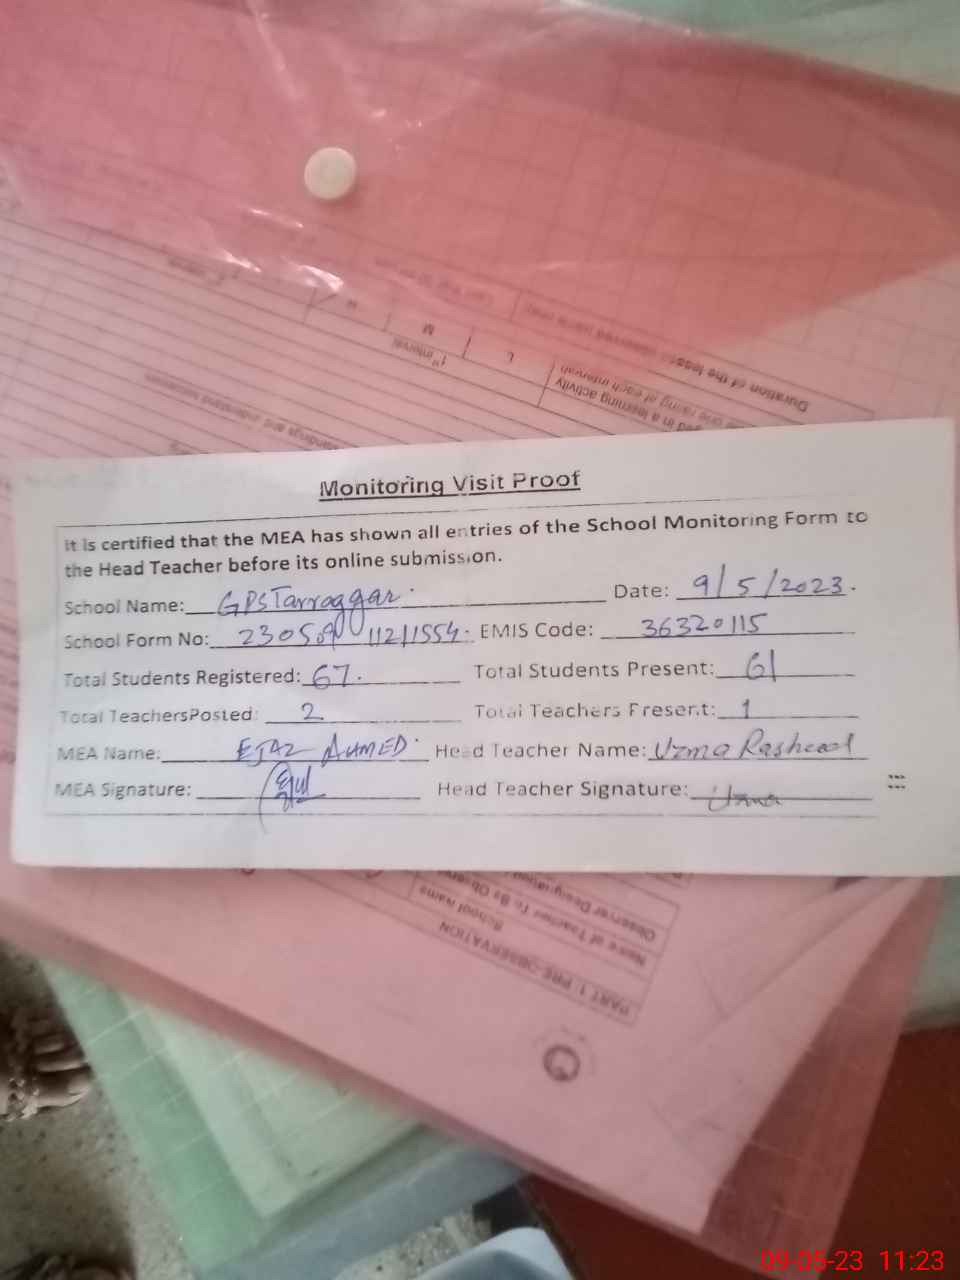 Duration of the less
one rating at each interval)
ged in a learning activity
1st interval
L
M
H
Monitoring Visit Proof
It is certified that the MEA has shown all entries of the School Monitoring Form to
the Head Teacher before its online submission.
School Name: GPS Tarraggar. Date: 9/5/2023.
School Form No: EMIS Code: 36320115
Total Students Registered: 67. Total Students Present: 61
Total TeachersPosted: 2 Total Teachers Present: 1
MEA Name: EJAZ AHMED Head Teacher Name: Uzma Rasheed
MEA Signature: Head Teacher Signature: Uzma
Observer Designation
Name of Teacher To Be Observ
School Name
PART 1: PRE-OBSERVATION
09-05-23 11:23